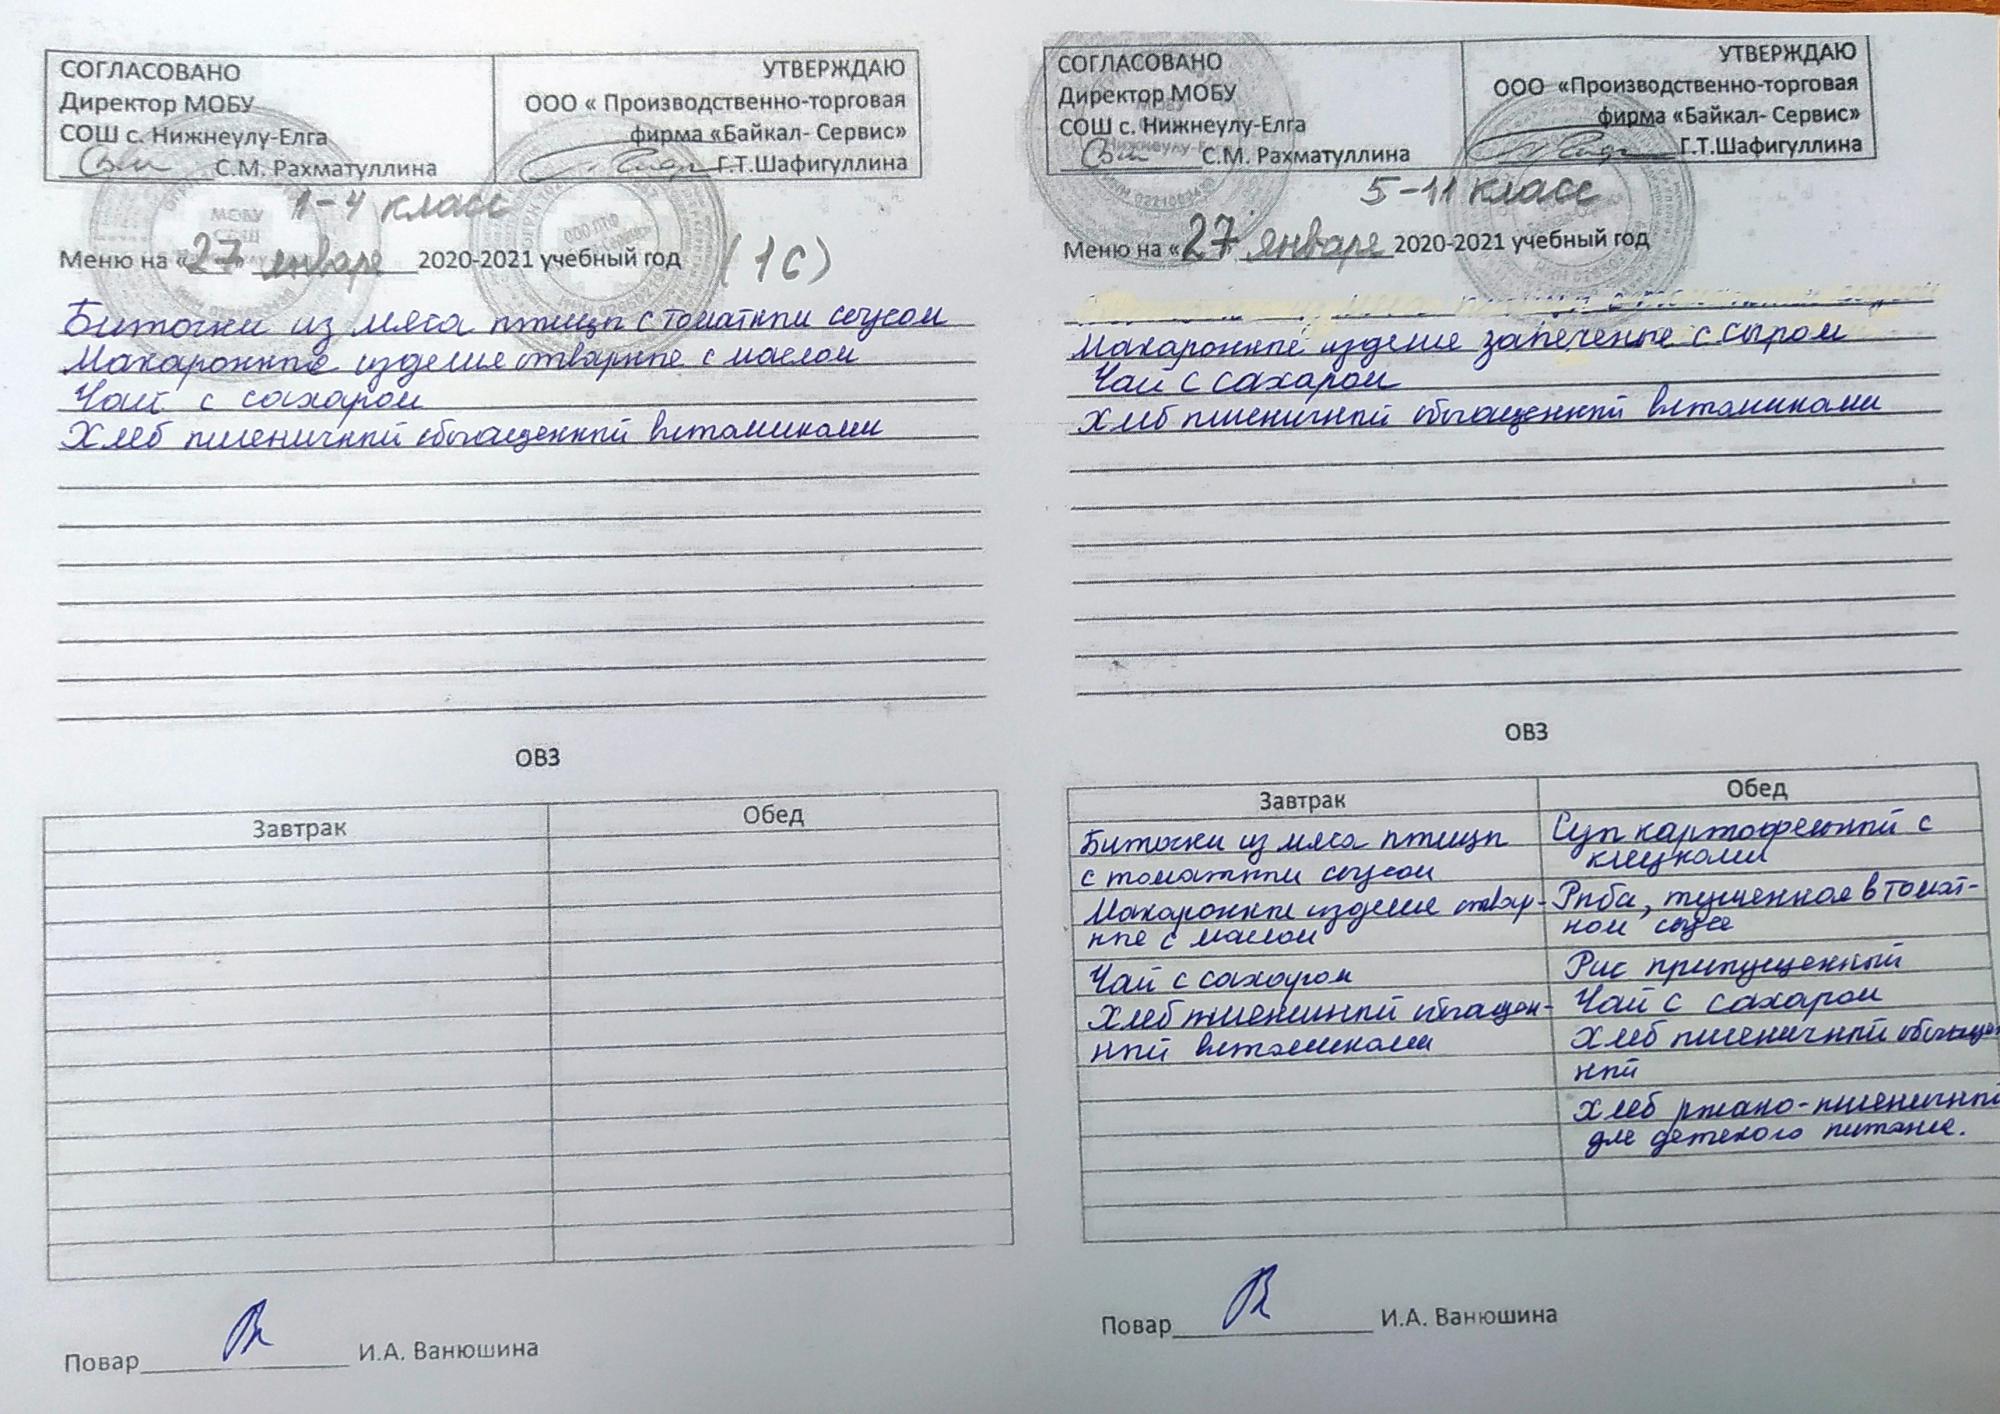 СОГЛАСОВАНО
Директор МОБУ
СОШ с. Нижнеулу-Елга
С.М. Рахматуллина
УТВЕРЖДАЮ
ООО « Производственно-торговая
фирма «Байкал- Сервис»
Г.Т.Шафигуллина
1-4 класс
Меню на «27» января 2020-2021 учебный год (1с)
Биточки из мяса птицы с томатным соусом
Макаронные изделия отварные с маслом
Чай с сахаром
Хлеб пшеничный обогащенный витаминами
ОВЗ
Завтрак Обед
Повар И.А. Ванюшина
СОГЛАСОВАНО
Директор МОБУ
СОШ с. Нижнеулу-Елга
С.М. Рахматуллина
УТВЕРЖДАЮ
ООО «Производственно-торговая
фирма «Байкал- Сервис»
Г.Т.Шафигуллина
5-11 класс
Меню на «27» января 2020-2021 учебный год
Макаронные изделия запеченые с сыром
Чай с сахаром
Хлеб пшеничный обогащенный витаминами
ОВЗ
Завтрак
Биточки из мяса птицы
с томатным соусом
Макаронные изделия отвар-
ные с маслом
Чай с сахаром
Хлеб пшеничный обогащен-
ный витаминами
Обед
Суп картофельный с
клецками
Рыба, тушенная в томат-
ном соусе
Рис припущенный
Чай с сахаром
Хлеб пшеничный обогащен
ный
Хлеб ржано-пшеничный
для детского питания.
Повар И.А. Ванюшина